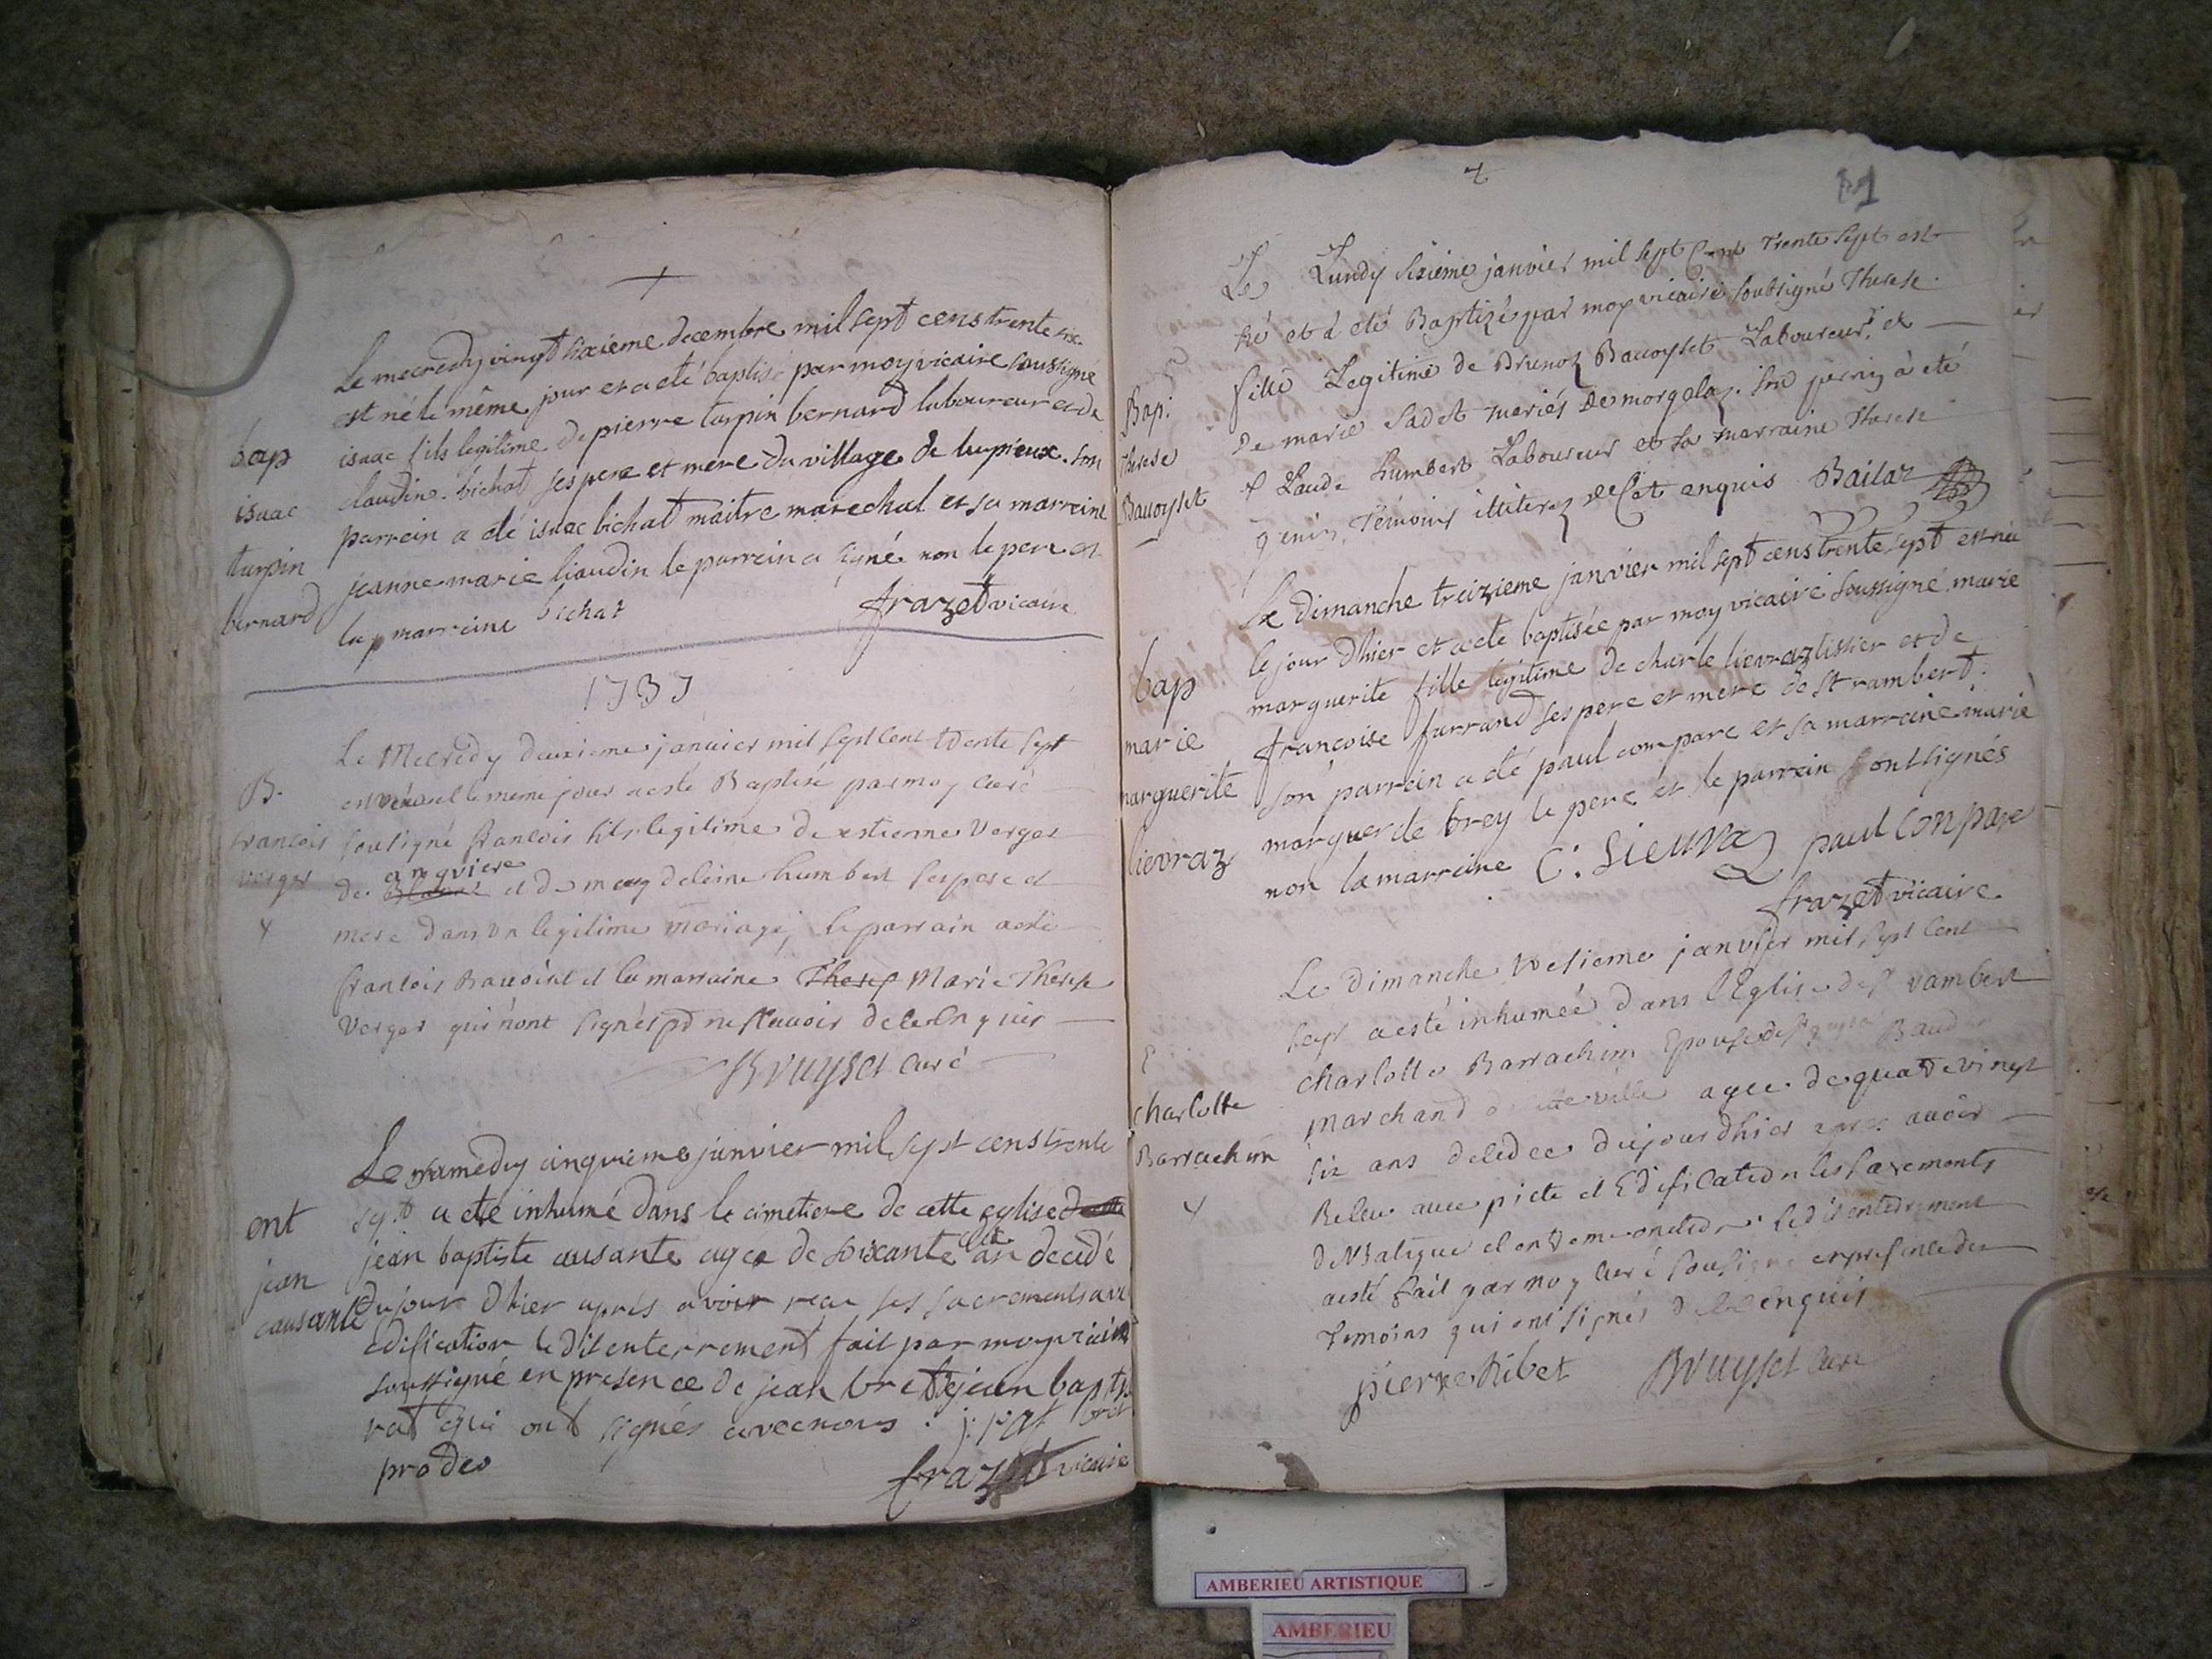 +
Le mecredy vingt sixieme decembre mil sept cens trente six
est né le même jour et a eté baptisé par moy vicaire soussigné
isaac fils legitime de pierre turpin bernard laboureur et de
claudine bichat ses pere et mere du village de lupieux. son
parrein a eté isaac bichat maitre marechal et sa marreine
jeanne marie liaudin le parrein a signé non le pere et
la marreine bichat frazet vicaire
bap
isaac
turpin
bernard
1737
Le Mecredy deuxieme janvier mil sept cent trente sept
le meme jour a esté Baptisé par moy curé
sousigné francois fils legitime de estienne Verger
angviere
de et de magdeleine humbert ses pere et
mere dans un legitime mariage, le parrain a esté
francois Bavoiset et la marraine Therese Marie Therese
Verger qui n'ont signés pr ne scavoir de ce enquis
Bruyset curé
B.
francois
verger
Le samedy cinquieme janvier mil sept cens trente
sept a eté inhumé dans le cimetiere de cette eglise
jean baptiste causante agée de soixante an decedé
du jour d'hier aprés avoir recu ses sacrements avec
edification le dit enterrement fait par moy vicaire
soussigné en presence de jean bret jean baptis
rat qui ont signés avec nous. j: rat bret
pro deo frazet vicaire
ent
jean
causante
+
Le Lundy sixieme janvier mil sept Cent Trente sept est
né et à eté Baptizé par moy vicaire soubsigné Therese
fille Legitime de Brunoz Bauoyset Laboureur, et
de marie Sadet mariés de morgelaz. son perrig à eté
Claude humbert Laboureur et sa marraine Therese
genin, Témoins illiterez de Cet enquis Bailaz
Bap:
Therese
Bauoyset
Le dimanche treizieme janvier mil sept cens trente sept est née
le jour d'hier et a eté baptisée par moy vicaire soussigné marie
marguerite fille legitime de charle lievraz tissier et de
francoise farrand ses pere et mere de st rambert.
son parrein a eté paul compare et sa marreine marie
marguerite brey le pere et le parrein sont signés
non la marreine C: Lieuraz paul Conpare
frazet vicaire
bap
marie
marguerite
lievraz
Le dimanche janvier mil sept cent
sept a esté inhumée dans l'Eglise de st rambert
charlotte Barrachim Epouse de sr Baud
marchand de cette ville agée de quatre vingt
six ans decedee du jour d'hier apres avoir
Receu avec pieté et Edification les sacrements
de Viatique et extreme onction. le dit enterrement
a esté fait par moy curé sousigné en presence des
temoins qui ont signés de ce enquis
pierre Ribet Bruyset curé
E
charlotte
Barrachim
AMBERIEU ARTISTIQUE
AMBERIEU